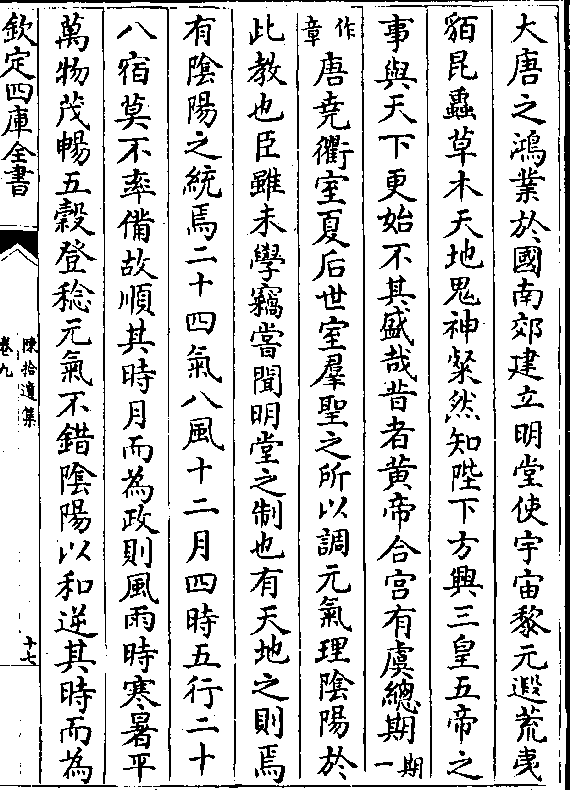 大唐之鴻業於國南郊建立明堂使宇宙黎元遐荒夷
貊昆蟲草木天地鬼神粲然知陛下方興三皇五帝之
事與天下更始不其盛哉昔者黃帝合宫有虞總期一期
作章唐堯衢室夏后世室羣聖之所以調元氣理隂陽於
此教也臣雖未學竊嘗聞明堂之制也有天地之則焉
有隂陽之統焉二十四氣八風十二月四時五行二十
八宿莫不率備故順其時月而為政則風雨時寒暑平
萬物茂暢五穀登稔元氣不錯隂陽以和逆其時而為
欽定四庫全書
陳拾遺集
卷九
十七